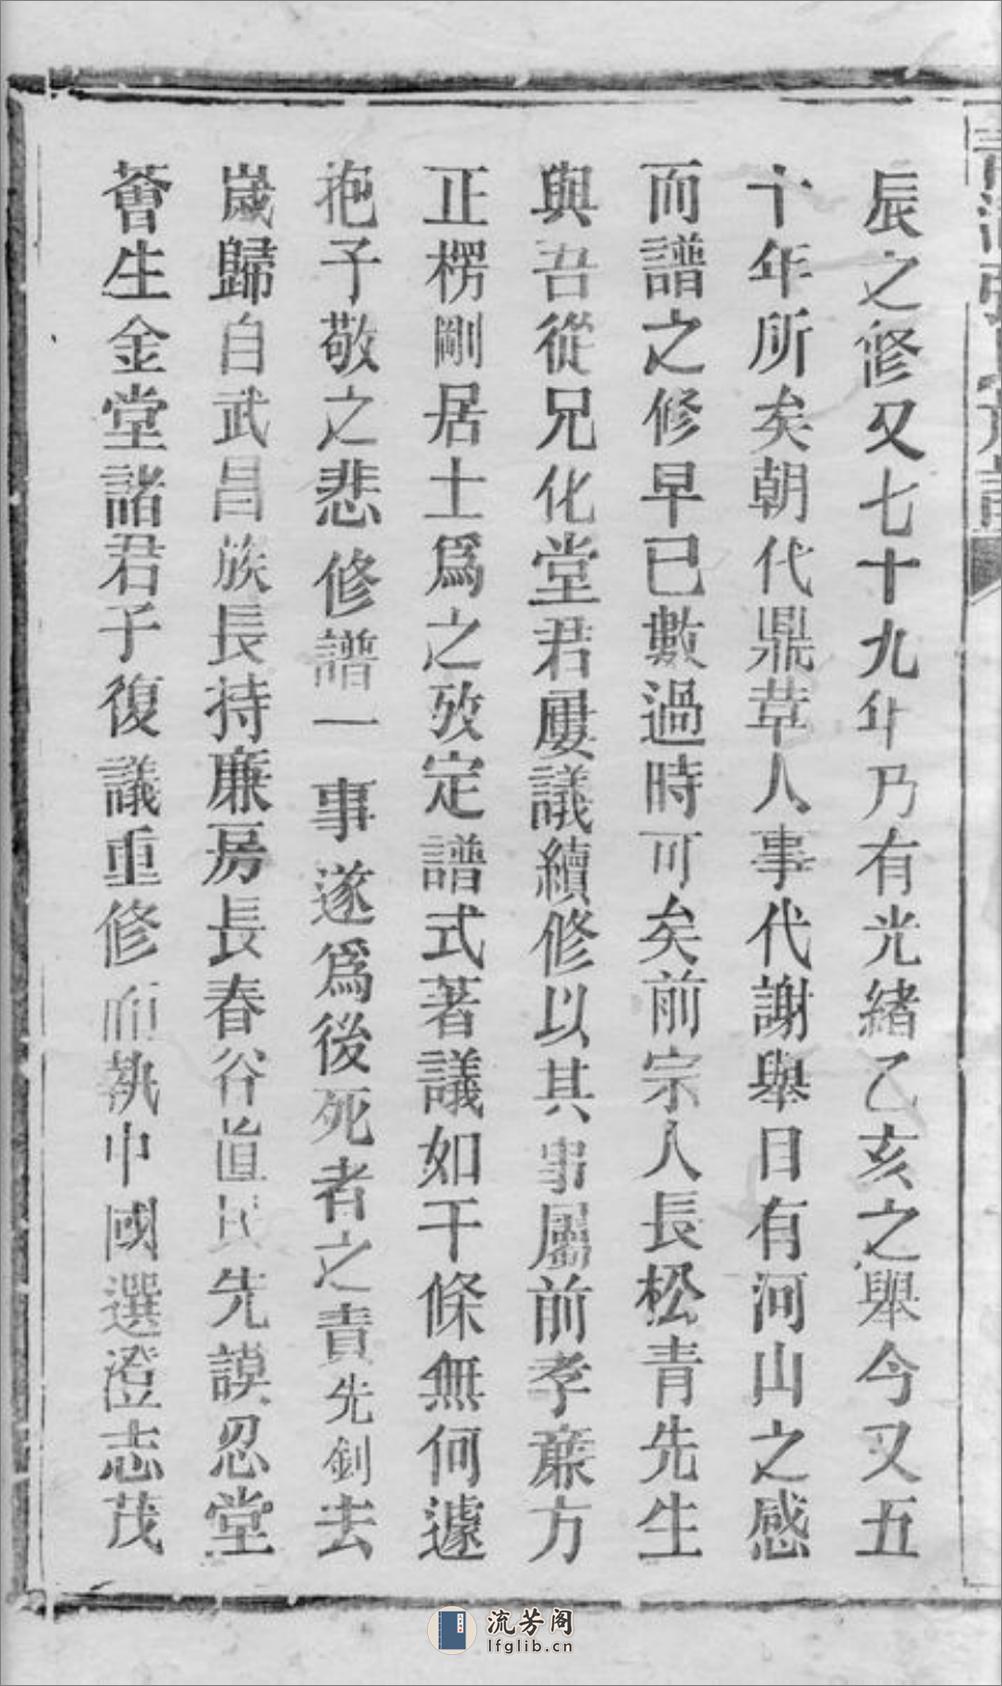 辰之修又七十九年乃有光緒乙亥之舉今又五
十年所矣朝代鼎革人事代謝舉目有河山之感
而譜之修早已數過時可矣前宗人長松青先生
與吾從兄化堂君屢議續修以其事屬前孝廉方
正楞剛居士爲之攷定譜式著議如干條無何遽
抱子敬之悲修譜一事遂爲後死者之責先釗去
歲歸自武昌族長持廉房長春谷直民先謨忍堂
薈生金堂諸君子復議重修而執中國選澄志茂
流芳阁
lfglib.cn